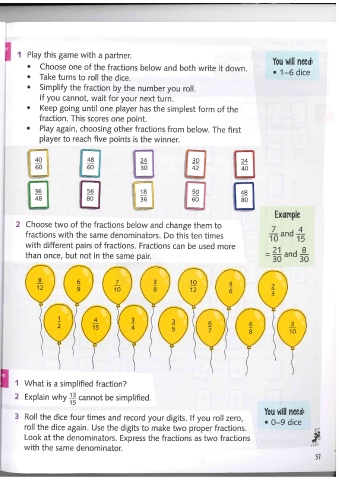 1 Play this game with a partner.
• Choose one of the fractions below and both write it down.
• Take turns to roll the dice.
• Simplify the fraction by the number you roll.
If you cannot, wait for your next turn.
• Keep going until one player has the simplest form of the
fraction. This scores one point.
• Play again, choosing other fractions from below. The first
player to reach five points is the winner.
You will need:
• 1–6 dice
40/60 48/60 24/30 30/42 24/40
36/48 56/80 18/36 50/60 48/80
2 Choose two of the fractions below and change them to
fractions with the same denominators. Do this ten times
with different pairs of fractions. Fractions can be used more
than once, but not in the same pair.
Example
7/10 and 4/15
= 21/30 and 8/30
8/12 6/9 7/10 3/8 10/12 4/6 2/3
1/2 4/15 3/4 3/5 6/7 6/8 3/10
1 What is a simplified fraction?
2 Explain why 13/15 cannot be simplified.
3 Roll the dice four times and record your digits. If you roll zero,
roll the dice again. Use the digits to make two proper fractions.
Look at the denominators. Express the fractions as two fractions
with the same denominator.
You will need:
• 0–9 dice
57